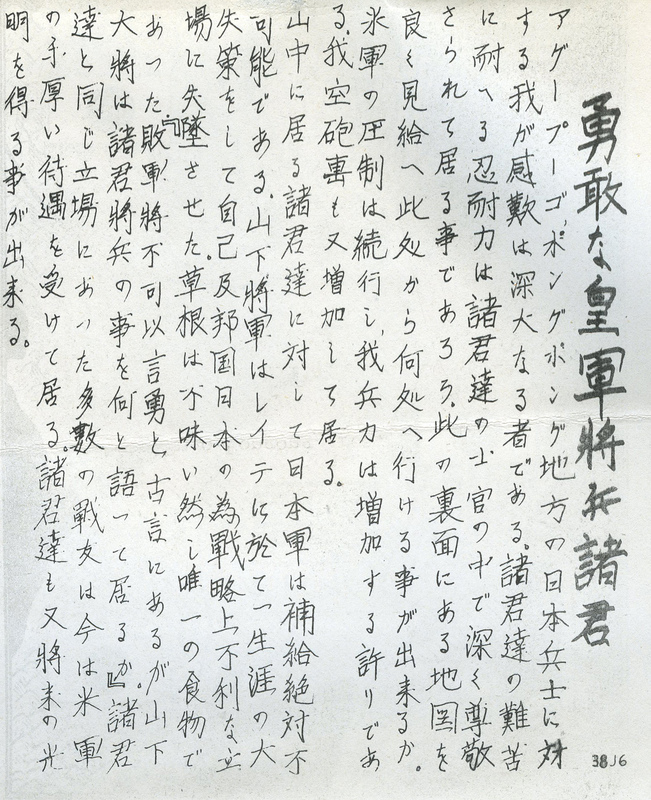 勇敢な皇軍將兵諸君
アグープーゴ、ポングポング地方の日本兵士に対
する我が感歎は深大なる者である。諸君達の難苦
に耐へる忍耐力は諸君達の士官の中で深く尊敬
さられて居る事であろう。此の裏面にある地図を
良く見給へ此処から何処へ行ける事が出来るか。
米軍の圧制は続行し、我兵力は増加する許りであ
る。我空砲裏も又増加して居る。
山中に居る諸君達に対して日本軍は補給絶対不
可能である。山下將軍はレイテに於て一生涯の大
失策をして自己及邦国日本の為戰略上不利な立
場に失墜させた。草根は不味い然し唯一の食物で
あった『敗軍將不可以言勇と古言にあるが山下
大將は諸君將兵の事を何と語って居るか。』諸君
達と同じ立場にあった多數の戰友は今は米軍
の手厚い待遇を受けて居る。諸君達も又將来の光
明を得る事が出来る。
38J6